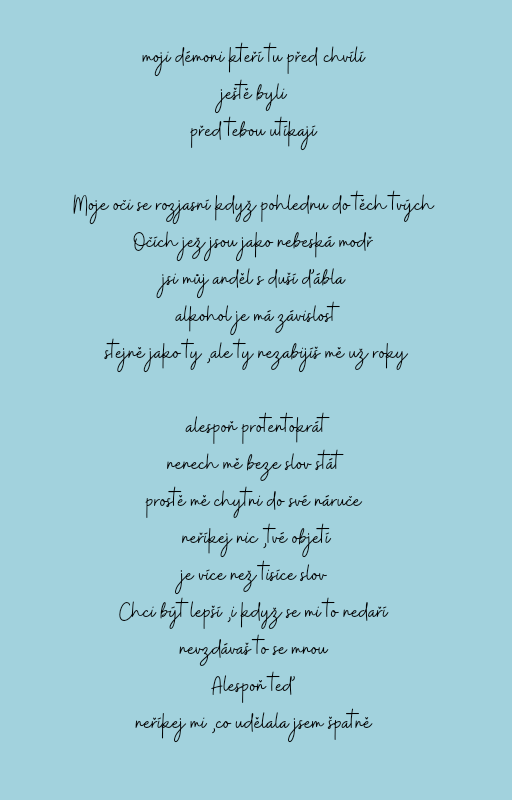 moji démoni kteří tu před chvílí
ještě byli
před tebou utíkají
Moje oči se rozjasní když pohlednu do těch tvých
Očích jež jsou jako nebeská modř
jsi můj anděl s duší ďábla
alkohol je má závislost
stejně jako ty ,ale ty nezabijíš mě už roky
alespoň protentokrát
nenech mě beze slov stát
prostě mě chytni do své náruče
neříkej nic ,tvé objetí
je více než tisíce slov
Chci být lepší ,i když se mi to nedaří
nevzdávaš to se mnou
Alespoň teď
neříkej mi ,co udělala jsem špatně